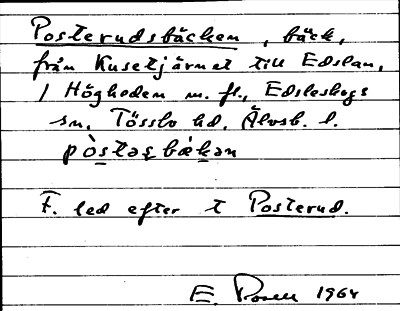 Posterudsbäcken, bäck,
från Kusetjärnet till Edslan,
/ Högheden m. fl., Edsleskogs
sn, Tössbo hd, Älvsb. l.
pòstəʂbækən
F. led efter t Posterud.
E. Rosell 1964